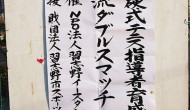 硬式テニス指導者育成
流ダブルスマッチ
催 NPO法人習志野ベースタ
後 財団法人習志野市スポーツ